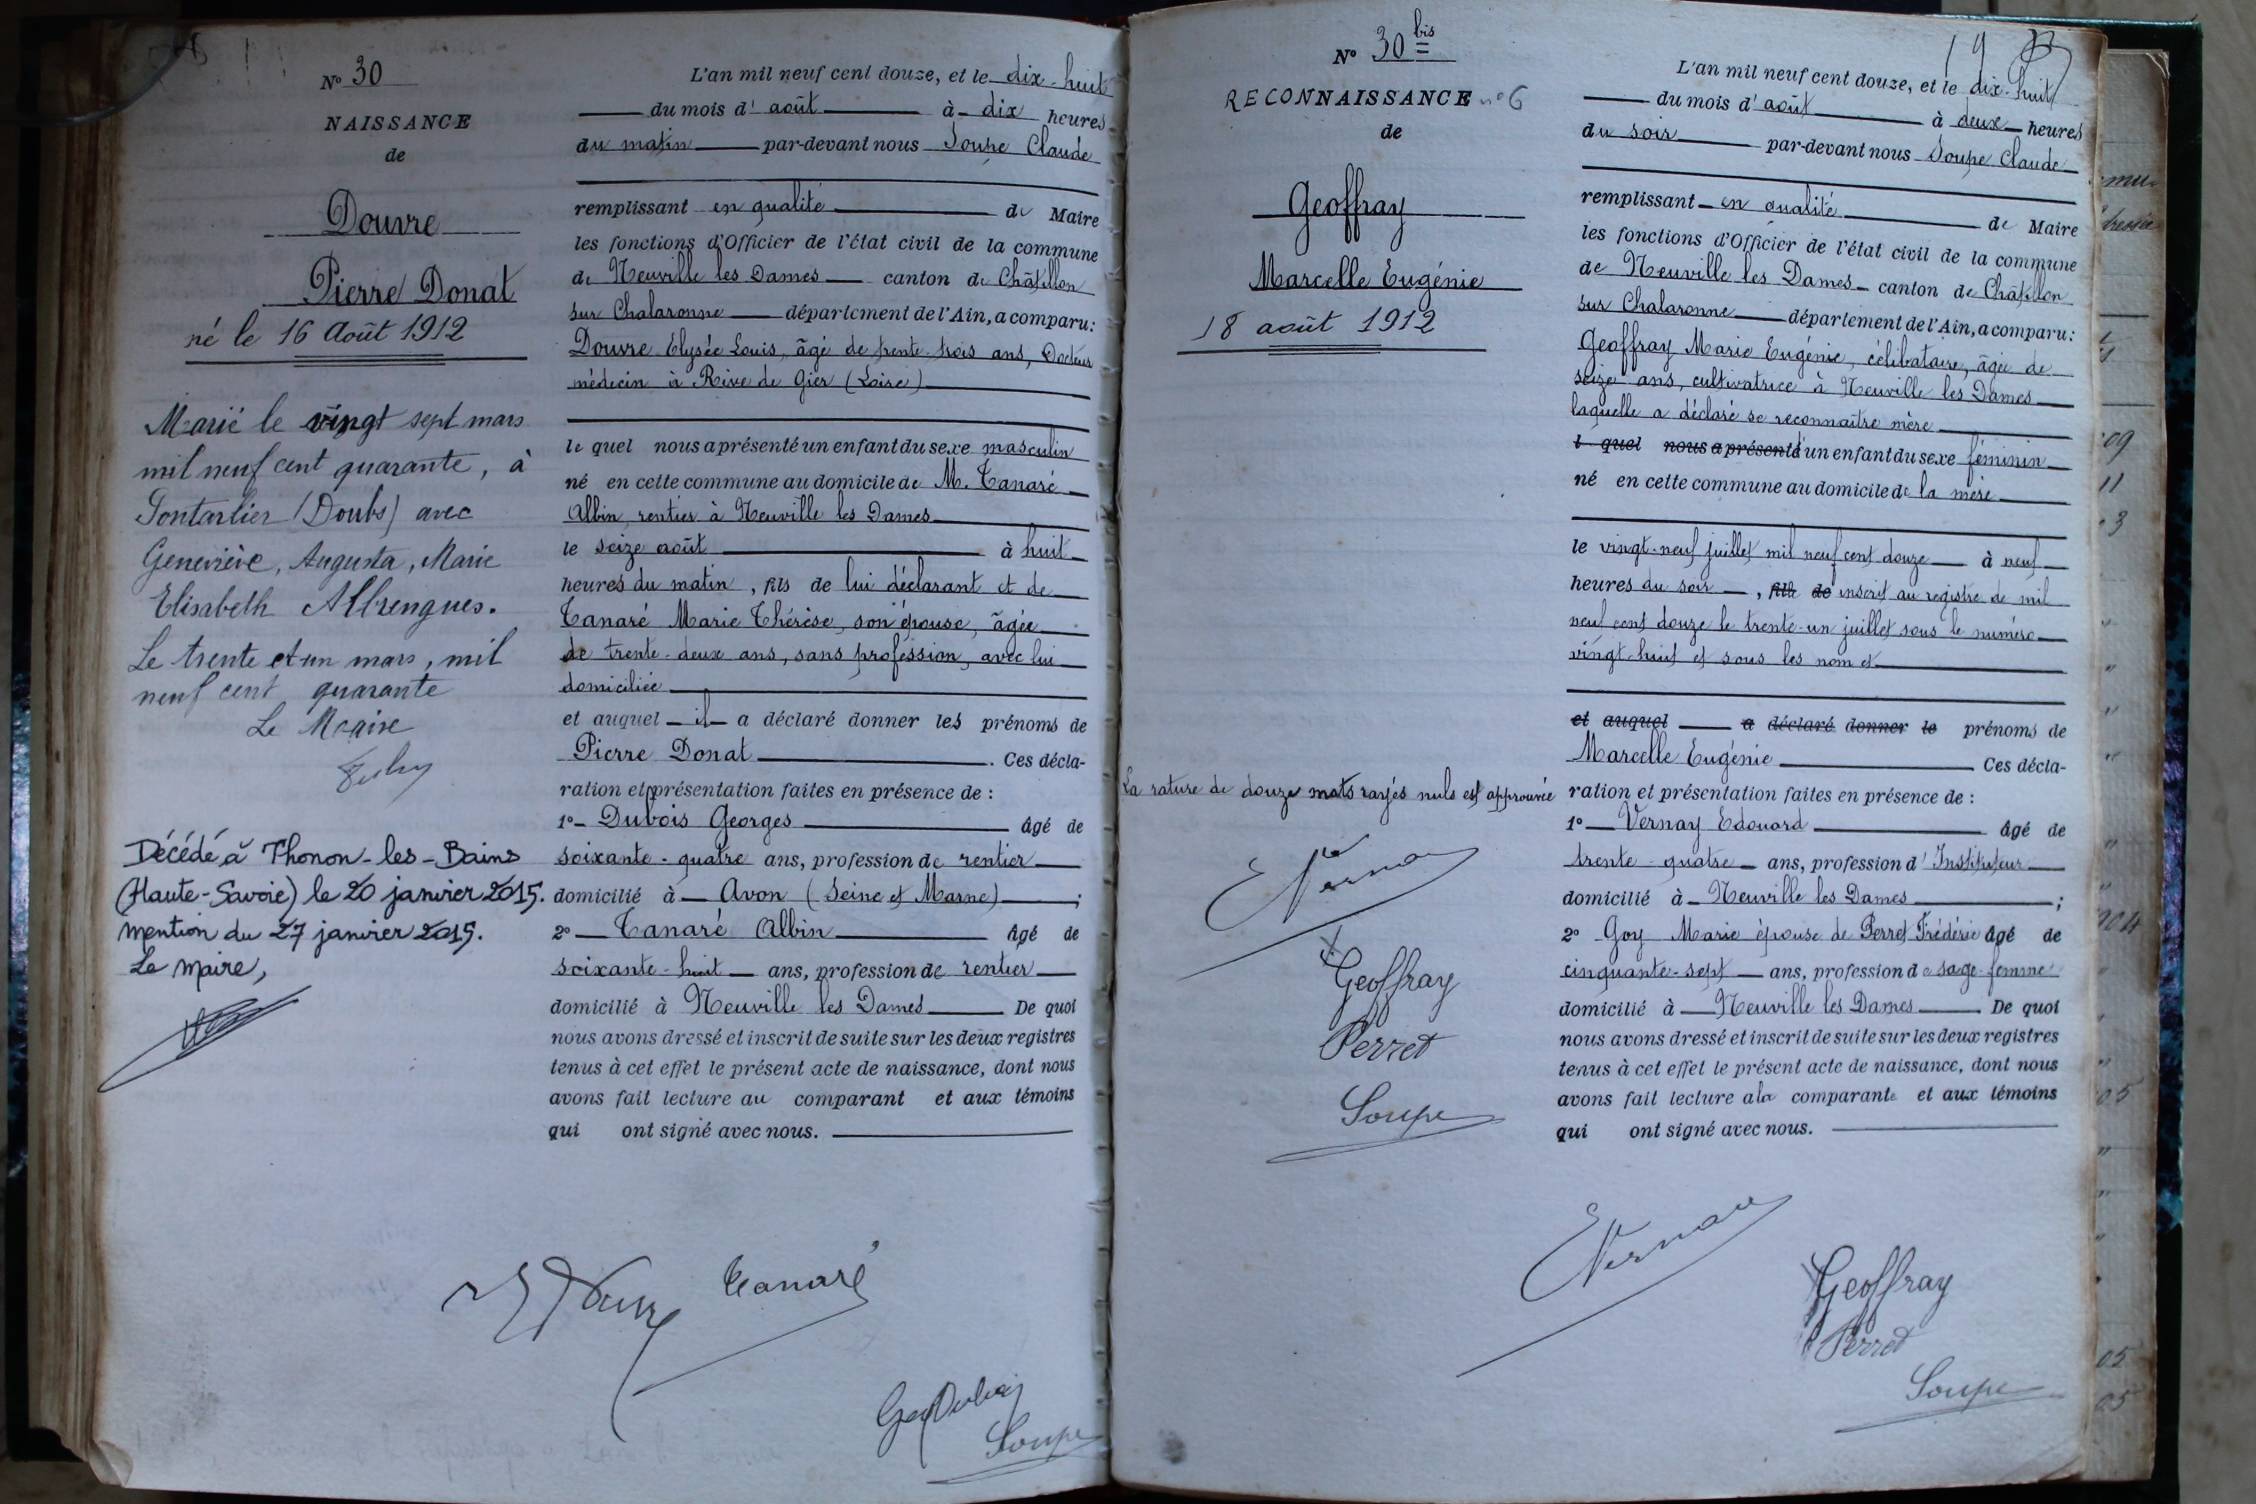 N° 30
NAISSANCE
de
Douvre
Pierre Donat
né le 16 Août 1912
Marié le vingt sept mars
mil neuf cent quarante, à
Pontarlier (Doubs) avec
Geneviève, Augusta, Marie
Elisabeth Albrengues.
Le trente et un mars, mil
neuf cent quarante
Le Maire
Décédé à Thonon-les-Bains
(Haute-Savoie) le 20 janvier 2015.
mention du 27 janvier 2015.
Le maire,
L'an mil neuf cent douze, et le dix-huit
du mois d'août à dix heures
du matin par-devant nous Soupe Claude
remplissant en qualité de Maire
les fonctions d'Officier de l'état civil de la commune
de Neuville les Dames canton de Châtillon
sur Chalaronne département de l'Ain, a comparu:
Douvre Elysée Louis, âgé de trente-trois ans, Docteur
médecin à Rive de Gier (Loire)
le quel nous a présenté un enfant du sexe masculin
né en cette commune au domicile de M. Tanaré
Albin, rentier à Neuville les Dames
le seize août à huit
heures du matin, fils de lui déclarant et de
Tanaré Marie Thérèse, son épouse, âgée
de trente-deux ans, sans profession, avec lui
domiciliée
et auquel il a déclaré donner les prénoms de
Pierre Donat. Ces décla-
ration et présentation faites en présence de :
1° Dubois Georges âgé de
soixante-quatre ans, profession de rentier
domicilié à Avon (Seine et Marne) ;
2° Tanaré Albin âgé de
soixante-huit ans, profession de rentier
domicilié à Neuville les Dames De quoi
nous avons dressé et inscrit de suite sur les deux registres
tenus à cet effet le présent acte de naissance, dont nous
avons fait lecture au comparant et aux témoins
qui ont signé avec nous.
Tanaré
Soupe
N° 30 bis
RECONNAISSANCE n° 6
de
Geoffray
Marcelle Eugénie
18 août 1912
La rature de douze mots rayés nuls est approuvée
EVernay
Geoffray
Perret
Soupe
19
L'an mil neuf cent douze, et le dix-huit
du mois d'août à deux heures
du soir par-devant nous Soupe Claude
remplissant en qualité de Maire
les fonctions d'Officier de l'état civil de la commune
de Neuville les Dames canton de Châtillon
sur Chalaronne département de l'Ain, a comparu:
Geoffray Marie Eugénie, célibataire, âgée de
seize ans, cultivatrice à Neuville les Dames
laquelle a déclaré se reconnaître mère
l quel nous a présenté d'un enfant du sexe féminin
né en cette commune au domicile de la mère
le vingt-neuf juillet mil neuf cent douze à neuf
heures du soir, fille de inscrit au registre de mil
neuf cent douze le trente-un juillet sous le numéro
vingt-huit et sous les nom et
et auquel a déclaré donner le prénoms de
Marcelle Eugénie Ces décla-
ration et présentation faites en présence de :
1° Vernay Edouard âgé de
trente-quatre ans, profession d'Instituteur
domicilié à Neuville les Dames ;
2° Goy Marie épouse de Perret Frédéric âgé de
cinquante-sept ans, profession de sage-femme
domicilié à Neuville les Dames De quoi
nous avons dressé et inscrit de suite sur les deux registres
tenus à cet effet le présent acte de naissance, dont nous
avons fait lecture à la comparante et aux témoins
qui ont signé avec nous.
EVernay
Geoffray
Perret
Soupe